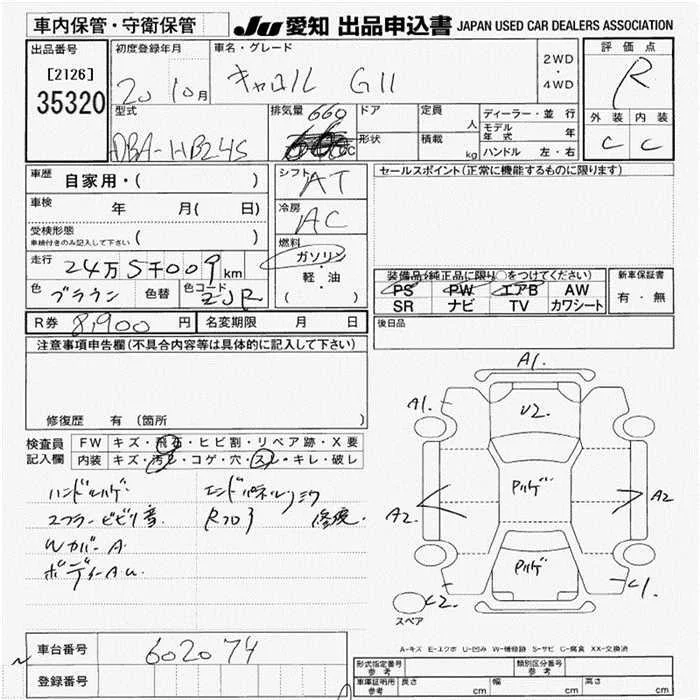 車内保管・守衛保管
Ju 愛知 出品申込書 JAPAN USED CAR DEALERS ASSOCIATION
出品番号
[2126]
35320
初度登録年月
20 10月
車名・グレード
キャロル GⅡ
2WD
・
4WD
評価点
R
外装 内装
C C
型式
DBA-HB24S
排気量 660
cc
ドア
形状
定員
人
積載
kg
ディーラー・並行
モデル年式 年
ハンドル 左・右
車歴 自家用・( )
車検 年 月( 日)
受検形態
車検付きのみ記入して下さい ( )
走行 24万5千009km
色 ブラウン 色替 色コード ZJR
シフト AT
冷房 AC
燃料
ガソリン
軽・油
( )
セールスポイント(正常に機能するものに限ります)
装備品(純正品に限り○をつけてください)
PS PW エアB AW
SR ナビ TV カワシート
新車保証書
有・無
R券 8,900円 名変期限 月 日
後日品
注意事項申告欄(不具合内容等は具体的に記入して下さい)
修復歴 有 (箇所 )
検査員
記入欄
FW キズ・飛石・ヒビ割・リペア跡・X要
内装 キズ・汚れ・コゲ・穴・スレ・キレ・破レ
ハンドルハゲ
エンドパネル
スフラービビリ音
Rフロア 修復.
Wカバー A.
ボディーAU.
A1.
A1.
U2.
ハゲ
A2.
A2
ハゲ
C2.
C1.
スペア
A-キズ E-エクボ U-凹み W-補修跡 S-サビ C-腐食 XX-交換済
車台番号 602074
登録番号
形式指定番号
参考
類別区分番号
参考
車庫証明用
参考
長さ cm 幅 cm 高さ cm